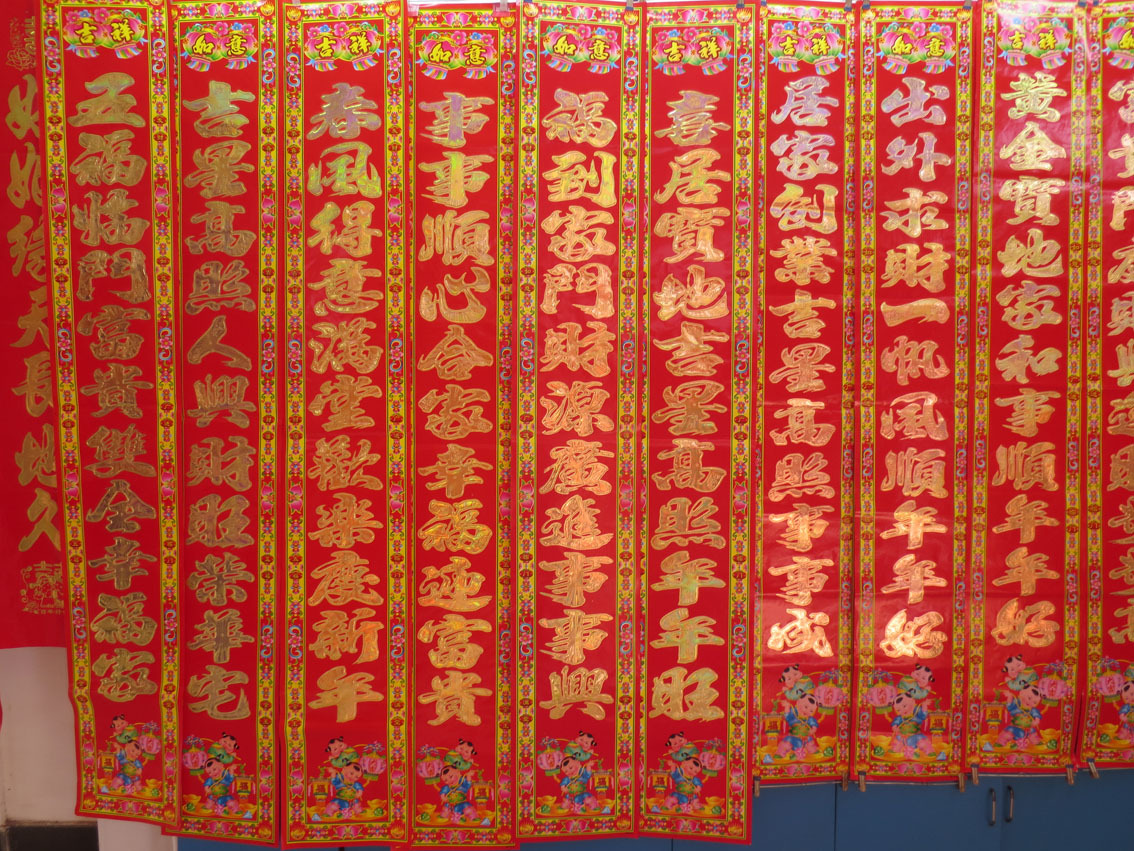 吉祥
黃金寶地家和事順年年好
如意
出外求財一帆風順年年好
吉祥
居家創業吉星高照事事成
吉祥
喜居寶地吉星高照年年旺
如意
福到家門財源廣進事事興
如意
事事順心合家幸福迎富貴
吉祥
春風得意滿堂歡樂度新年
如意
吉星高照人興財旺榮華宅
吉祥
五福临門富貴雙全幸福家
天長地久